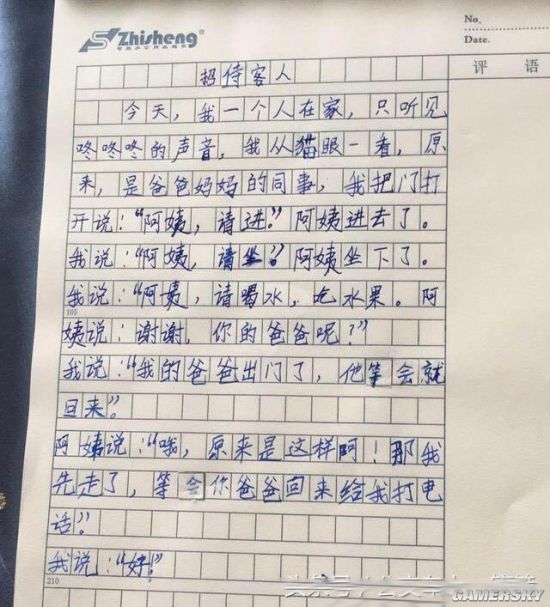 Zhisheng®
No.
Date.
评 语
招待客人
今天，我一个人在家，只听见
咚咚咚的声音，我从猫眼一看，原
来，是爸爸妈妈的同事，我把门打
开说：“阿姨，请进。”阿姨进去了。
我说：“阿姨，请坐。”阿姨坐下了。
我说：“阿姨，请喝水，吃水果。阿
105
姨说：谢谢，你的爸爸呢？”
我说：“我的爸爸出门了，他等会就
回来。”
阿姨说：“哦，原来是这样阿！那我
先走了，等会你爸爸回来给我打电
话。”
我说：“好。”
210
GAMERSKY